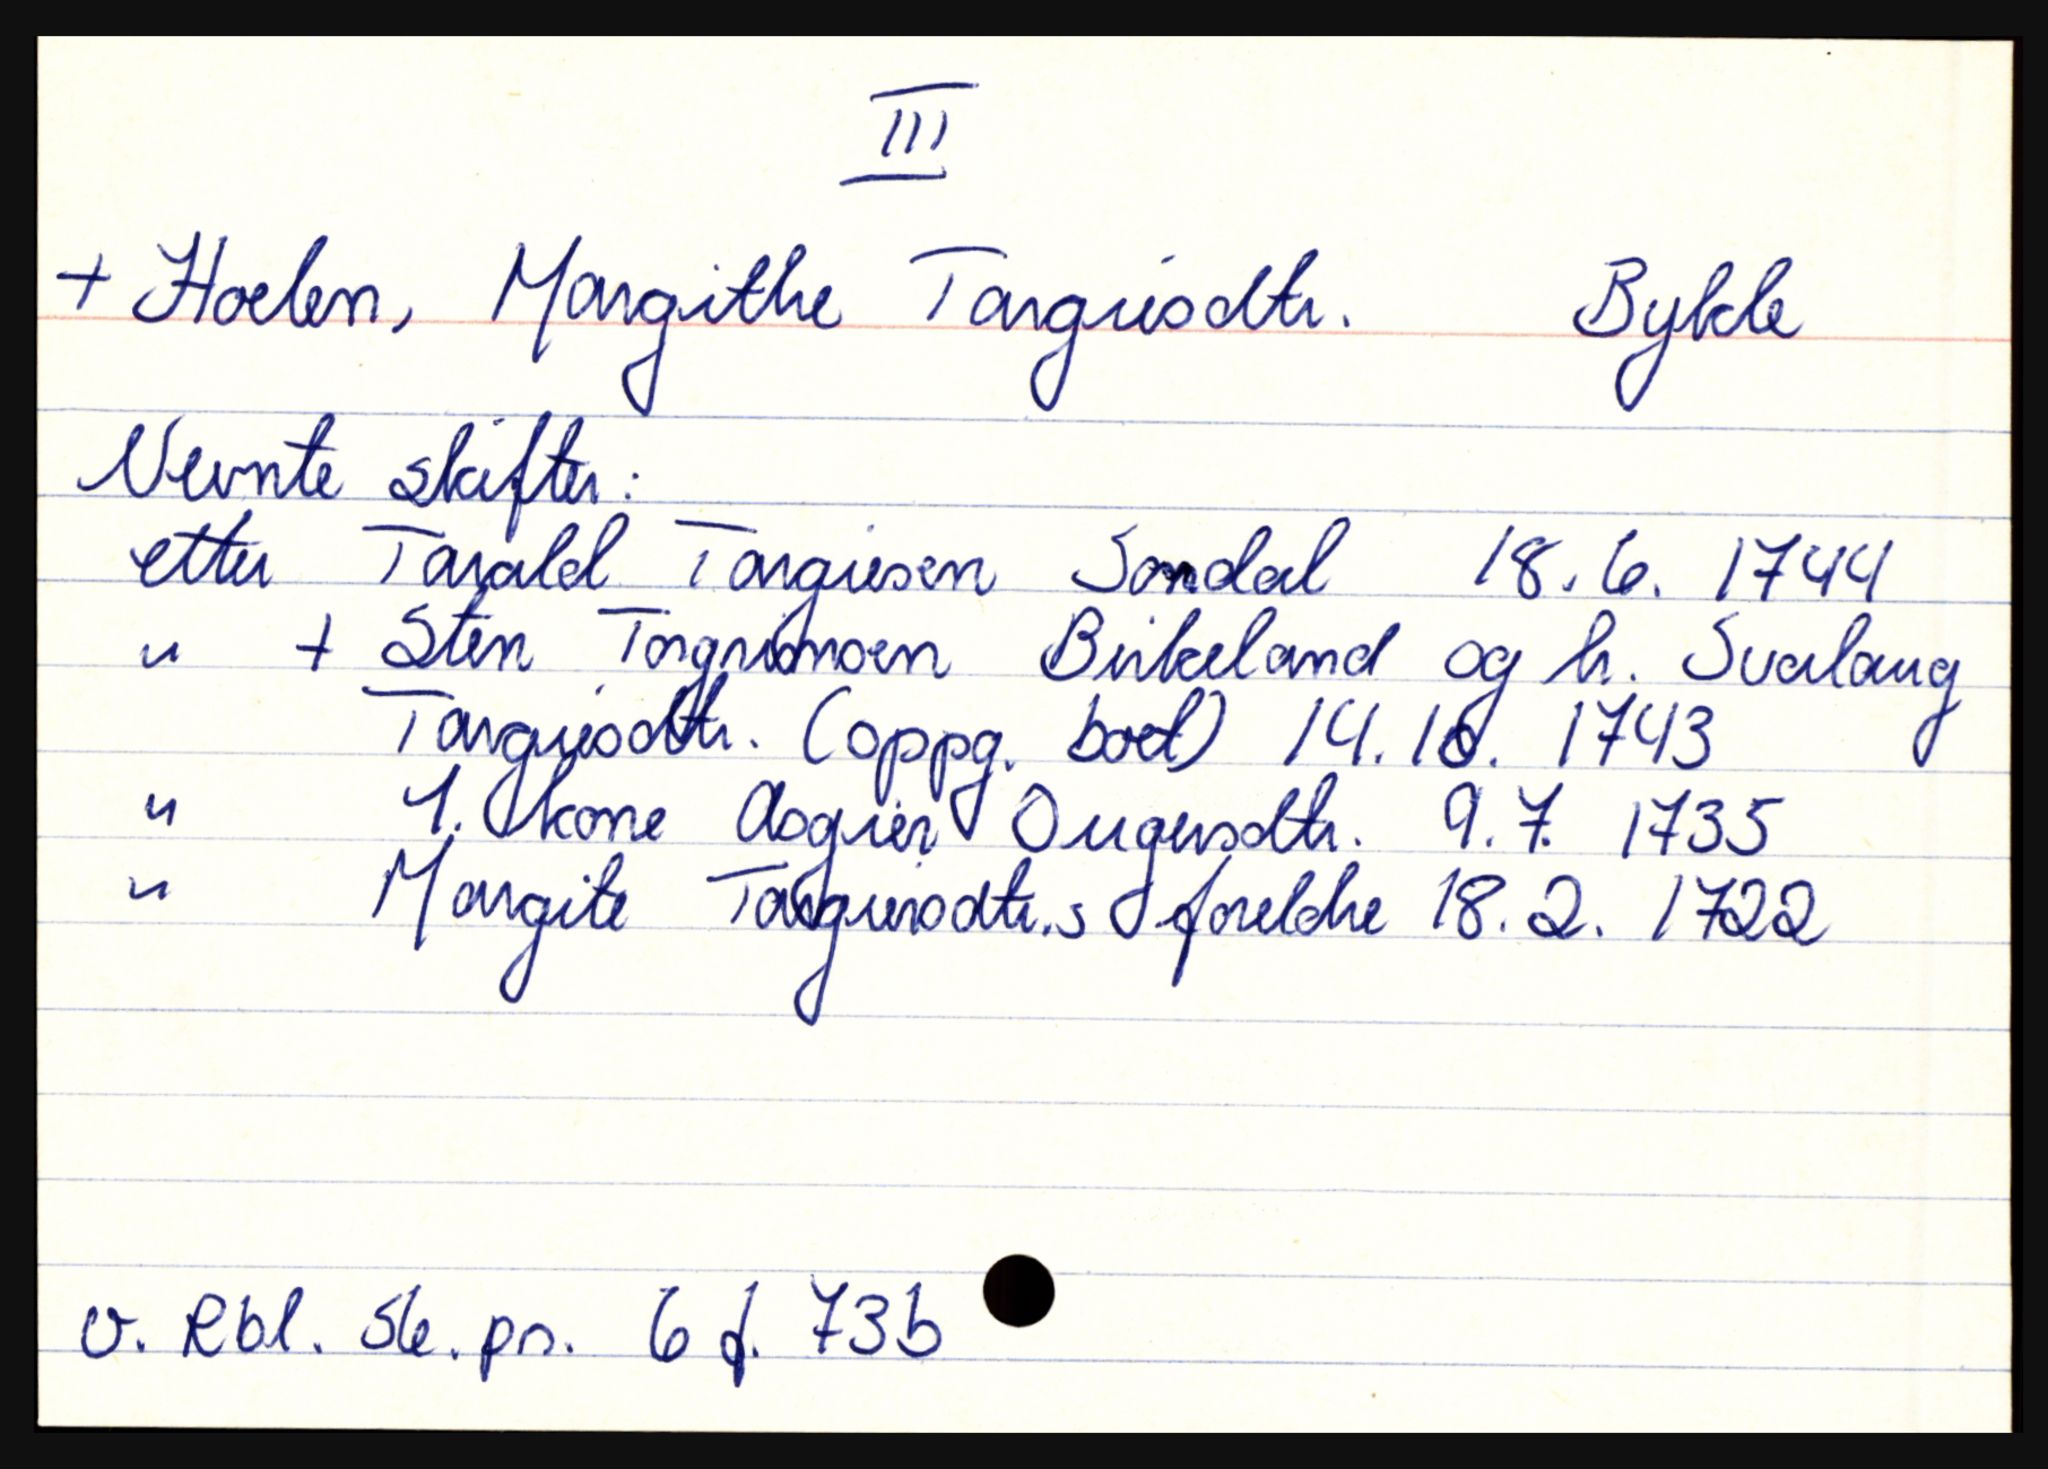 III
+ Hoelen, Margithe Targiesdtr. Bykle
Nevnte skifter:
etter Tarald Targiesen Sondal 18.6. 1744
" + Sten Birkeland og h. Svalaug
Targiesdtr. (oppg. boet) 14.10. 1743
" 1. kone Asgier 9.7. 1735
" Margite Targiesdtr.s foreldre 18.2. 1722
v. Rbl. Sk.pr. 6 f. 73b